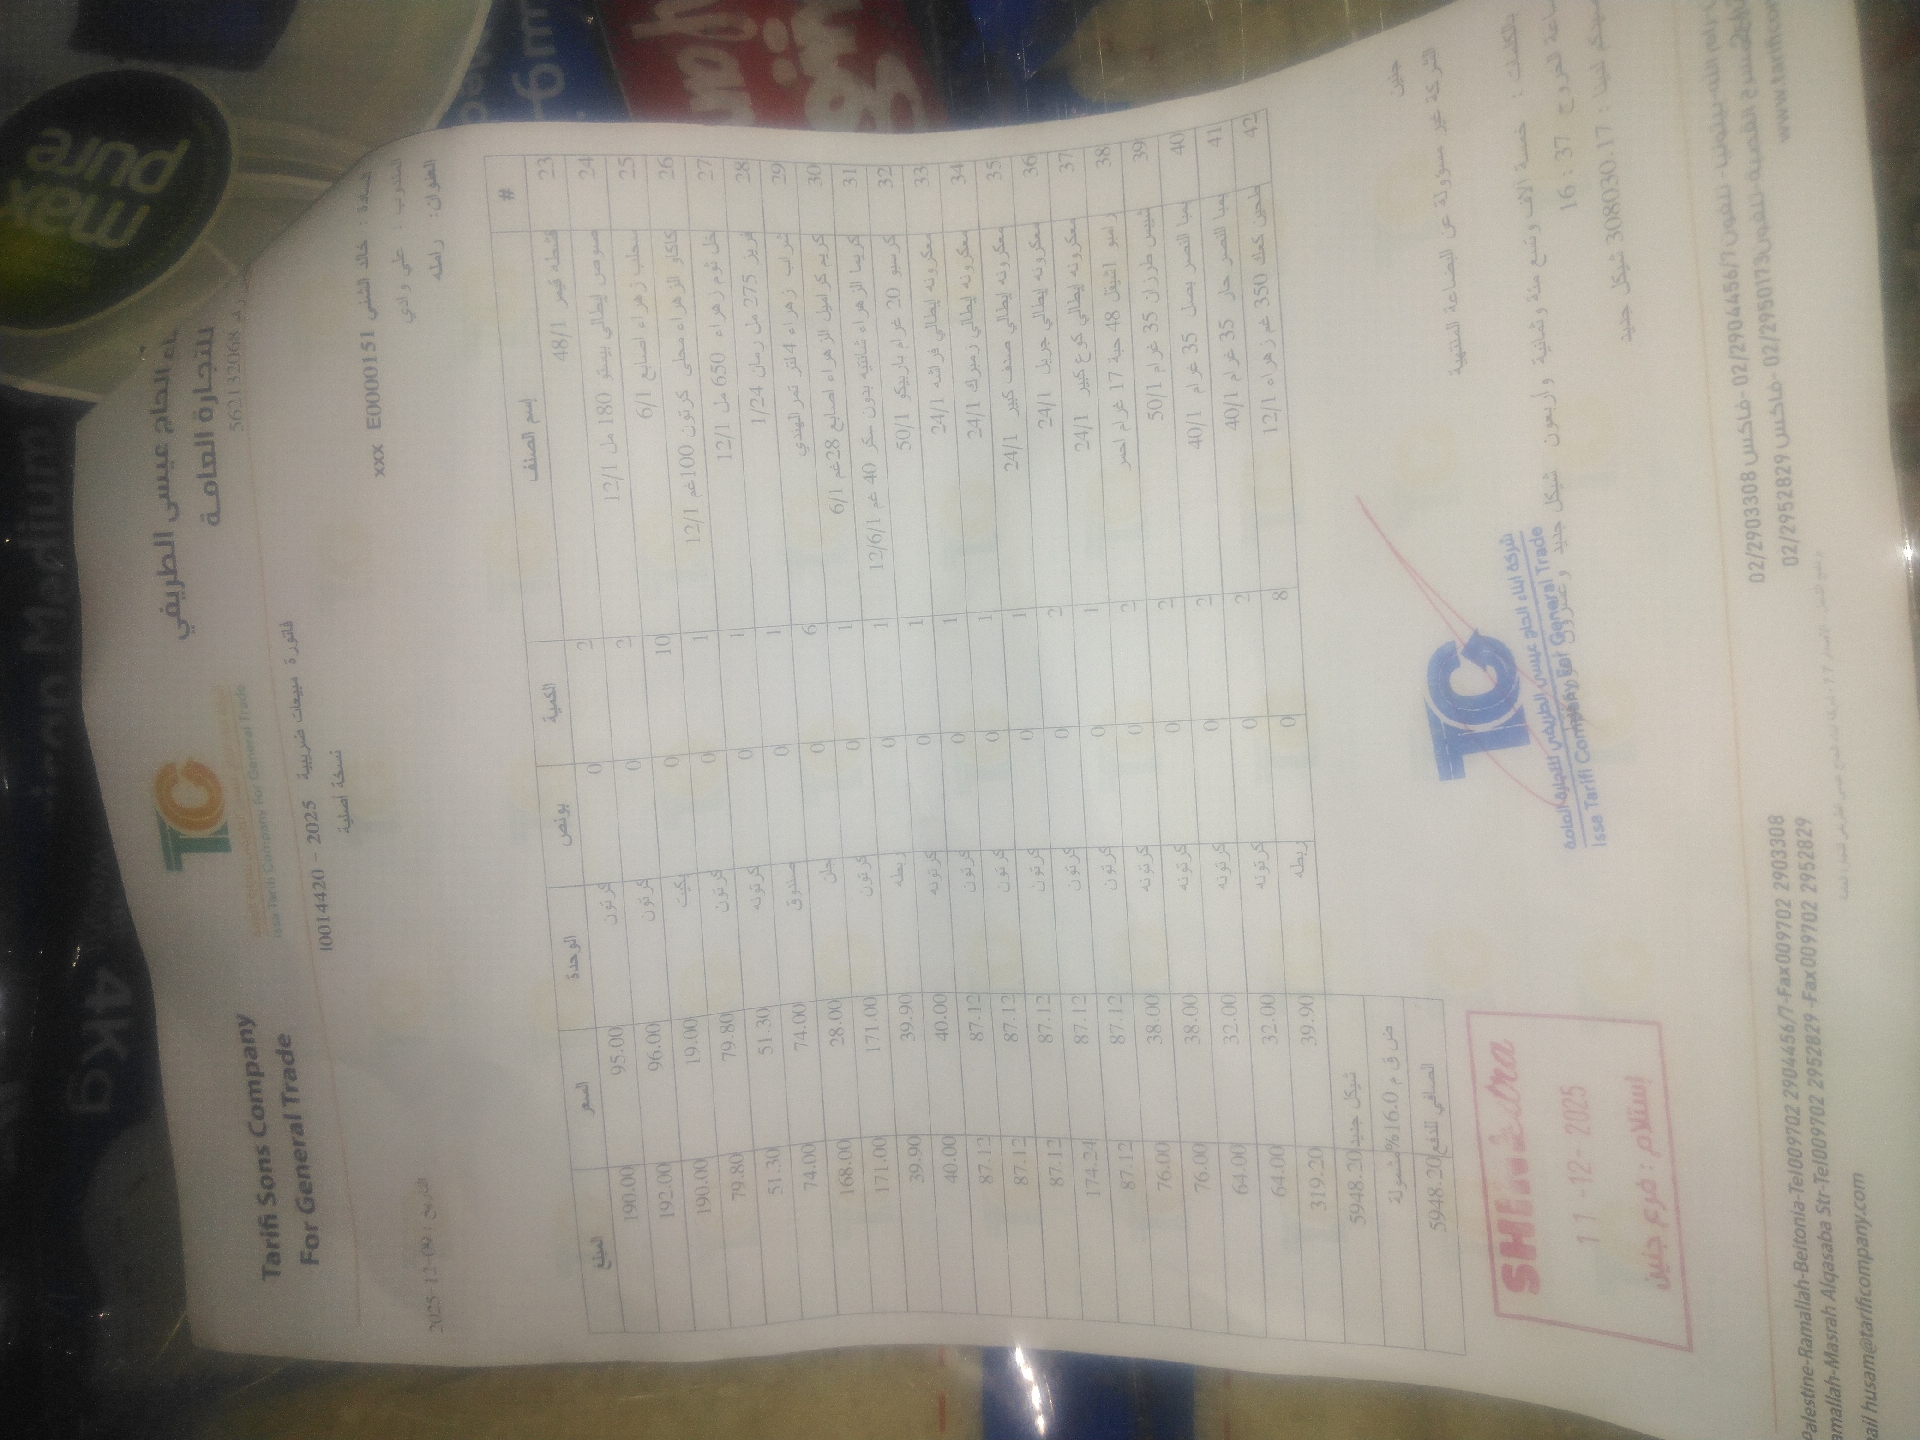 Tarifi Sons Company
For General Trade
الحاج عيسى الطريفي
للتجارة العامة
562132068
Issa Tarifi Company For General Trade
فاتورة مبيعات ضريبية 2025 - 10014420
نسخة أصلية
خالد الشني E0000151 xxx
المندوب : علي وادي
العنوان: رامله
التاريخ : 2025-12-09
# إسم الصنف الكمية بونص الوحدة السعر المبلغ
23 قشطه قيمر 48/1 2 0 كرتون 95.00 190.00
24 صوص إيطالي بيستو 180 مل 12/1 2 0 كرتون 96.00 192.00
25 سحلب زهراء اصابع 6/1 10 0 بكيت 19.00 190.00
26 كاكاو الزهراء محلى كرتون 100غم 12/1 1 0 كرتون 79.80 79.80
27 خل ثوم زهراء 650 مل 12/1 1 0 كرتونه 51.30 51.30
28 فريز 275 مل رمان 1/24 1 0 صندوق 74.00 74.00
29 شراب زهراء 4لتر تمر الهندي 6 0 28.00 168.00
30 كريم كراميل الزهراء اصابع 28غم 6/1 1 0 كرتون 171.00 171.00
31 كريما الزهراء شانتيه بدون سكر 40 غم 12/6/1 1 0 ربطه 39.90 39.90
32 كرسبو 20 غرام باربيكو 50/1 1 0 كرتونه 40.00 40.00
33 معكرونه إيطالي فراشه 24/1 1 0 كرتون 87.12 87.12
34 معكرونه إيطالي زمبرك 24/1 1 0 كرتون 87.12 87.12
35 معكرونه إيطالي صدف كبير 24/1 1 0 كرتون 87.12 87.12
36 معكرونه إيطالي جريل 24/1 2 0 كرتون 87.12 174.24
37 معكرونه إيطالي كوع كبير 24/1 1 0 كرتون 87.12 87.12
38 48 حبة 17 غرام احمر 2 0 كرتونه 38.00 76.00
39 شيبس طرزان 35 غرام 50/1 2 0 كرتونه 38.00 76.00
40 بمبا النصر بصل 35 غرام 40/1 2 0 كرتونه 32.00 64.00
41 بمبا النصر حار 35 غرام 40/1 2 0 كرتونه 32.00 64.00
42 طحين كعك 350 غم زهراء 12/1 8 0 ربطه 39.90 319.20
شيكل جديد 5948.20
ض ق م 16.0% مشمولة
الصافي للدفع 5948.20
جنين
الشركة غير مسؤولة عن البضاعة المنتهية
بالكلمات : خمسة الاف وتسع مئة وثمانية واربعون شيكل جديد وعشرون
ساعة الخروج 16:37
3080030.17 شيكل جديد
شركة ابناء الحاج عيسى الطريفي للتجارة العامة
Issa Tarifi Company For General Trade
11-12-2025
إستلام : فرع جنين
02/2904456/7 -فاكس 02/2903308
02/2950173 -فاكس 02/2952829
Palestine-Ramallah-Beitonia-Tel009702 2904456/7-Fax009702 2903308
amallah-Masrah Alqasaba Str-Tel009702 2952829 -Fax009702 2952829
ail husam@tarificompany.com
www.tarificom
max
pure
Medium
4Kg